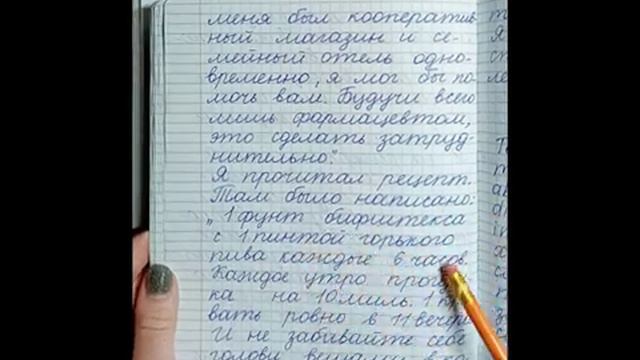 меня был кооператив
ный магазин и се-
мейный отель одно-
временно, я мог бы по
мочь вам. Будучи всего
лишь фармацевтом,
это сделать затруд-
нительно."
Я прочитал рецепт.
Там было написано:
„1 фунт бифштекса
с 1 пинтой горького
пива каждые 6 часов.
Каждое утро
ка на 10 миль. 1
вать ровно в 11 вечера
И не забивайте себе
голову вещами